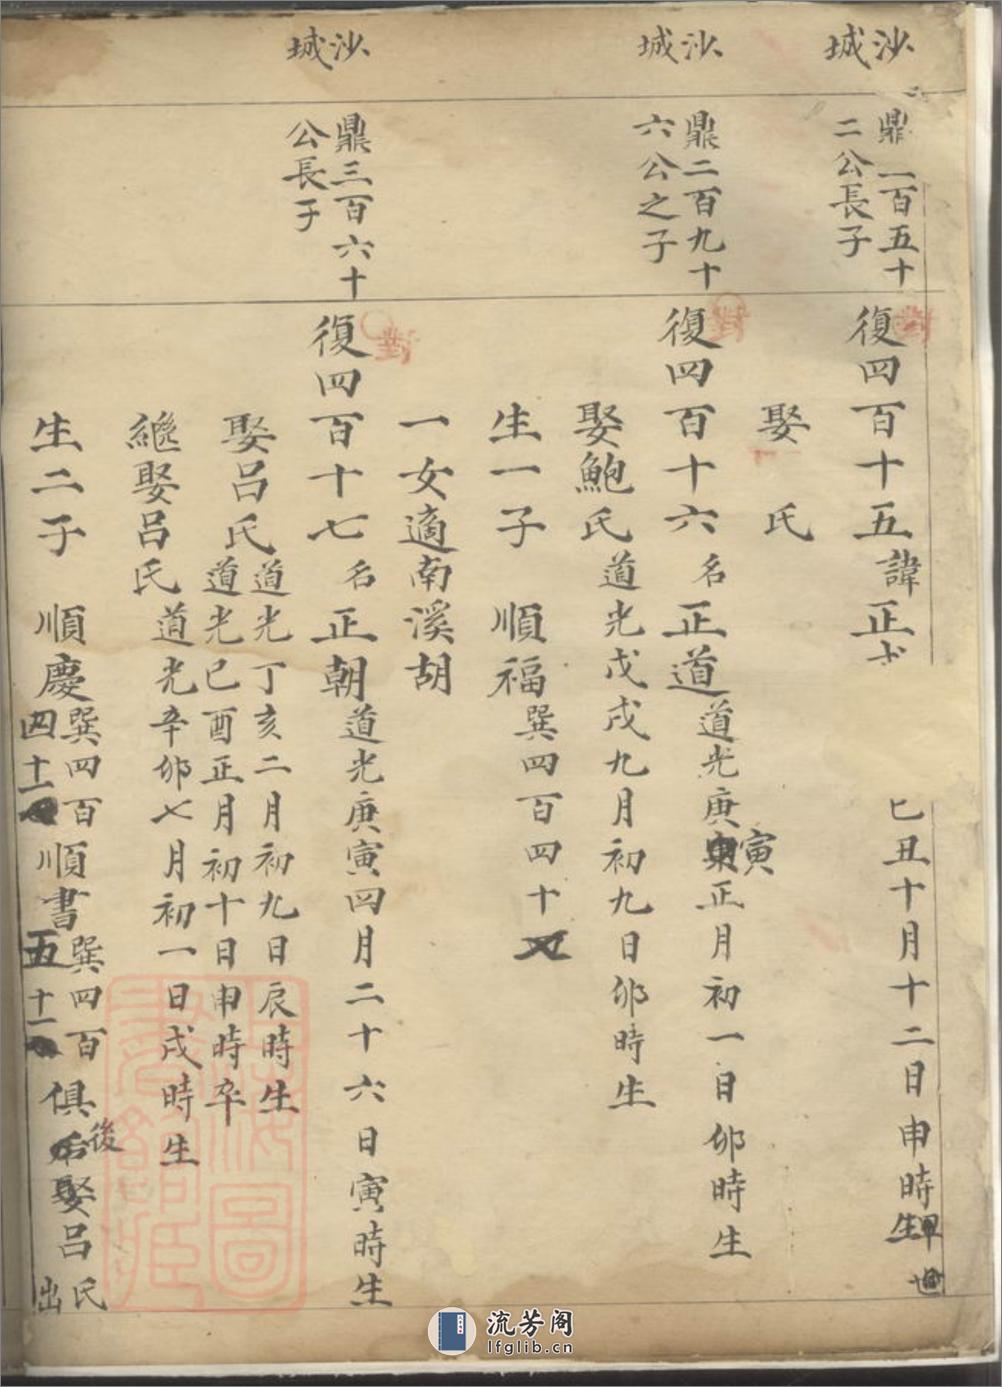 沙城
鼎一百五十
二公長子
復四百十五諱正
己丑十月十二日申時
生
娶 氏
沙城
鼎二百九十
六公之子
復四百十六名正道道光庚寅正月初一日卯時生
娶鮑氏道光戊戌九月初九日卯時生
生一子 順福巽四百四十
一女適南溪胡
沙城
鼎三百六十
公長子
復四百十七名正朝道光庚寅四月二十六日寅時生
娶呂氏道光丁亥二月初九日辰時生
道光己酉正月初十日申時卒
繼娶呂氏道光辛卯七月初一日戌時生
生二子 順慶巽四百四十一順書巽四百五十一俱後娶呂氏出
對
對
對
上海圖書館藏
流芳阁
lfglib.cn